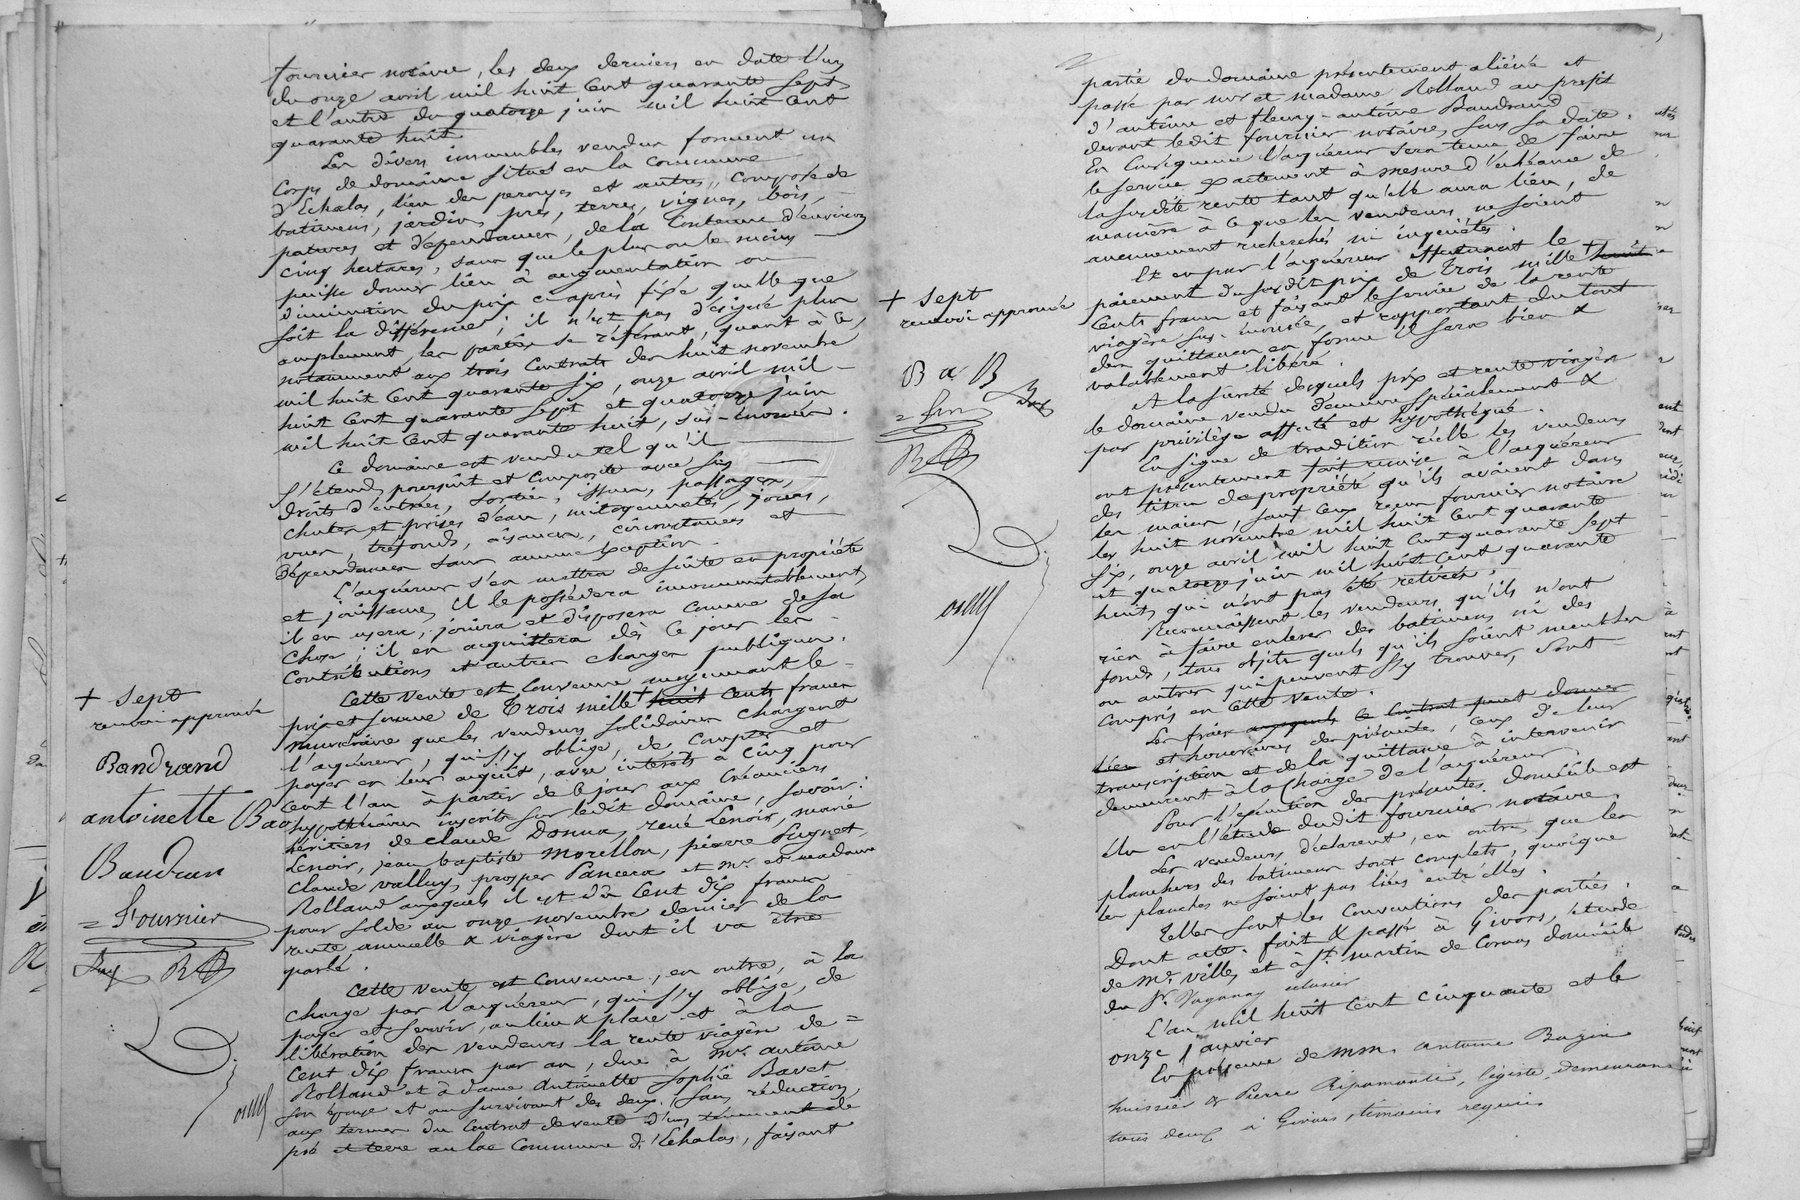 fournier notaire, les deux derniers en date l'un
du onze avril mil huit cent quarante sept
et l'autre du quatorze juin mil huit cent
quarante huit
Les divers immeubles vendus forment un
corps de domaine situé en la commune
d'Echalas, lieu des perouzes et autres, composé de
batimens, jardin, prés, terres, vignes, bois,
patures et dépendances, de la contenue d'environ
cinq hectares, sans que le plus ou le moins
puisse donner lieu à augmentation ou
diminution du prix ci-après fixé quelle que
soit la différence; il n'est pas désigné plus
amplement, les parties se référant, quant à ce,
notamment aux trois contrats des huit novembre
mil huit cent quarante six, onze avril mil
huit cent quarante sept et quatorze juin
mil huit cent quarante huit, sus-énoncés.
Ce domaine est vendu tel qu'il
s'étend, poursuit et comporte avec ses
droits d'entrées, sorties, issues, passages,
chutes et prises d'eau, mitoyennetés, jours,
vues, tréfonds, aisances, circonstances et
dépendances sans aucune exception.
L'acquéreur s'en mettra de suite en propriété
et jouissance, il le possédera incommutablement,
il en usera, jouira et disposera comme de sa
chose; il en acquittera dès ce jour les
contributions et autres charges publiques.
Cette vente est convenue moyennant le
prix et somme de trois mille + huit cents francs
numéraire que les vendeurs solidaires chargent
l'acquéreur, qui s'y oblige, de compter et
payer en leur acquit, avec intérêts à cinq pour
cent l'an à partir de ce jour aux créanciers
hypothécaires inscrits sur ledit domaine, savoir:
héritiers de claude Donna, rené Lenoir, marié
Lenoir, jean baptiste Morellon, pierre Pugnet,
claude valluy, prosper Pancera et mr. et madame
Rolland auxquels il est dû cent dix francs
pour solde au onze novembre dernier de la
rente annuelle & viagère dont il va être
parlé.
Cette vente est convenue, en outre, à la
charge par l'acquéreur, qui s'y oblige, de
payer et servir, au lieu & place et à la
libération des vendeurs la rente viagère de =
cent dix francs par an, due à mr. antoine
Rolland et à dame Antoinette Sophie Bavet
son épouse et au survivant des deux, sans réduction,
aux termes du contrat de vente d'un tènement de
pré et terre au lac commune d'Echalas, faisant
+ sept
renvoi approuvé
Baudrand
antoinette Bau
Baudran
= Fournier
partie du domaine présentement aliéné et
passé par mr et madame Rolland au profit
d'antoine et fleury-antoine Baudrand
devant ledit fournier notaire, sous sa date.
En conséquence l'acquéreur sera tenu de faire
le service exactement à mesure d'échéance de
la susdite rente tant qu'elle aura lieu, de
manière à ce que les vendeurs ne soient
aucunement recherchés, ni inquiétés.
Et en par l'acquéreur effectuant le
paiement du susdit prix de trois mille + huit
cents francs et faisant le service de la rente
viagère sus-énoncée, et rapportant du tout
des quittances en forme il sera bien &
valablement libéré.
A la sureté desquels prix et rente viagère
le domaine vendu demeure spécialement &
par privilège affecté et hypothéqué.
En signe de tradition réelle les vendeurs
ont présentement fait remise à l'acquéreur
des titres de propriété qu'ils avaient dans
les mains, sauf ceux reçus fournier notaire
les huit novembre mil huit cent quarante
six, onze avril mil huit cent quarante sept
et quatorze juin mil huit cent quarante
huit, qui n'ont pas été retirés.
Reconnaissent les vendeurs qu'ils n'ont
rien à faire enlever des batimens ni des
fonds, tous objets quels qu'ils soient meubles
ou autres qui peuvent s'y trouver, sont
compris en cette vente.
Les frais auxquels ce contrat peut donner
lieu et honoraires des présentes, ceux de leur
transcription et de la quittance à intervenir
demeurent à la charge de l'acquéreur.
Pour l'exécution des présentes domicile est
élu en l'étude dudit fournier notaire.
Les vendeurs déclarent, en outre, que les
planchers des batimens sont complets, quoique
les planches ne soient pas liées entr'elles.
Telles sont les conventions des parties.
Dont acte. fait & passé à Givors, étude
de Me. Villes et à St. martin de Cornas domicile
du Sr.
L'an mil huit cent cinquante et le
onze janvier
En présence de mm. antoine Bazin
huissier & Pierre Ripamonti, légiste, demeurans
tous deux à Givors, témoins requis
+ sept
renvoi approuvé
B a B